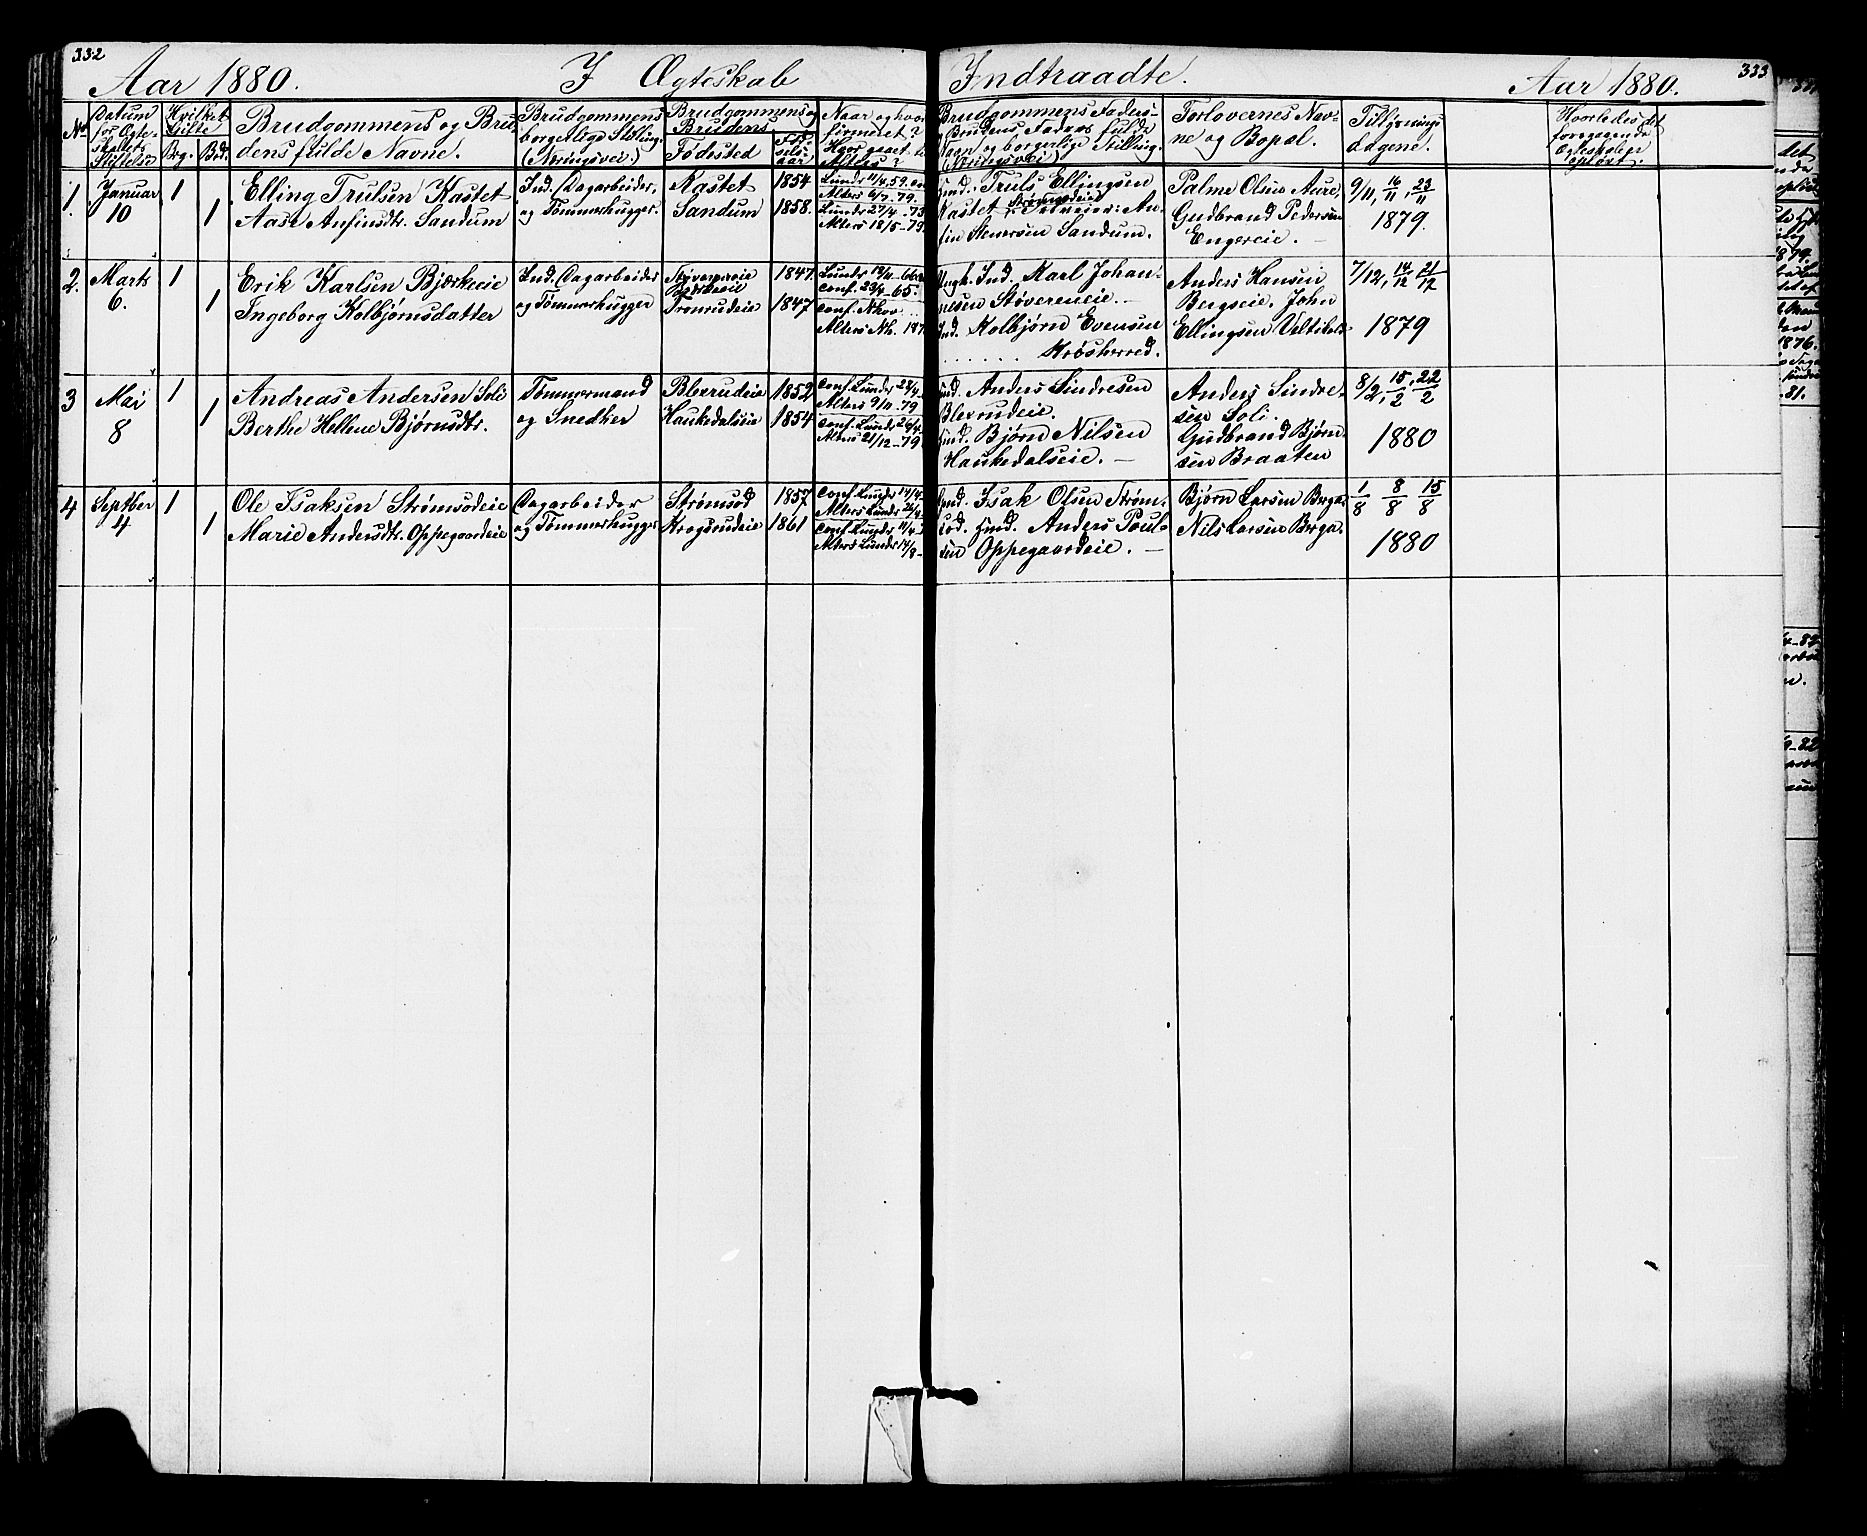 332
Aar 1880. I Ægteskab Indtraadte. Aar 1880. 333
No Datum for Ægteskabets Stiftelse
Hvilket Gifte
Brg. Brd.
Brudgommens og Brudens fulde Navne.
Brudgommens borgerlige Stilling. (Næringsvei.)
Brudgommens og Brudens
Fødested
Fødselsaar
Naar og hvor firmeret? Hvor gaaet til Alters?
Brudgommens Faders og Brudens Faders fulde Navn og borgerlige Stilling. (Næringsvei)
Forlovernes Navne og Bopæl.
Tillysningsdagene.
Hvorledes det foregaaende Ægteskab er opløst.
1. Januar 10
1
1
Elling Trulsen Kastet
Aase Anfinsdtr. Sandum
Ind. Dagarbeider,
og Tømmerhugger.
Kastet 1854
Sandum 1858.
Lunds 11/4, 59.
Alters 6/7 - 79.
Lunds 27/4 - 73
Alters 18/5 - 79.
Truls Ellingsen
Kastet
Anfin Stenersen Sandum.
Palme Olsen Aure,
Gudbrand Pedersen
Engereie. -
9/11, 16/11, 23/11
1879.
2. Marts 6.
1
1
Erik Karlsen Bjærkeeie
Ingeborg Kolbjørnsdatter
Ind. Dagarbeider
og Tømmerhugger
1847.
Tronrudeie 1847
Conf. 23/4 - 65.
Conf. Nhov
Alters Nh.
Ungk. Ind. Karl Johannesen Støvereneie. -
Ind. Kolbjørn Evensen
. . . . . . Krøsherred.
Anders Hansen
Bergseie. John
Ellingsen
7/12, 14/12 21/12
1879
3 Mai 8
1
1
Andreas Andersen Soli
Berthe Hellene Bjørnsdtr.
Tømmermand
og Snedker
Blexrudeie 1852
Haukedalseie 1854
Conf. Lunds
Alters 9/11 - 79
Conf. Lunds 26/4
Alters 21/12 - 79
Ind. Anders Sindresen
Blexrudeie.
Ind. Bjørn Nilsen
Haukedalseie. -
Anders Sindresen Soli.
Gudbrand Bjørnsen Braaten
8/2, 15/2, 22/2
1880
4 Septber 4
1
1
Ole Isaksen Strømsodeie
Marie Andersdtr. Oppegaardeie
Dagarbeider
og Tømmerhugger
Strømsod 1857
Krogsrudeie 1861
Conf. Lunds 14/4
Alters Lunds
Conf. Lunds 11/4
Alters Lunds 14/8 -
Ind. Isak Olsen Strømsod. Ind. Anders Poulsen Oppegaardeie. -
Bjørn Larsen Berga.
Nils Larsen Berga.
1/8 8/8 15/8
1880